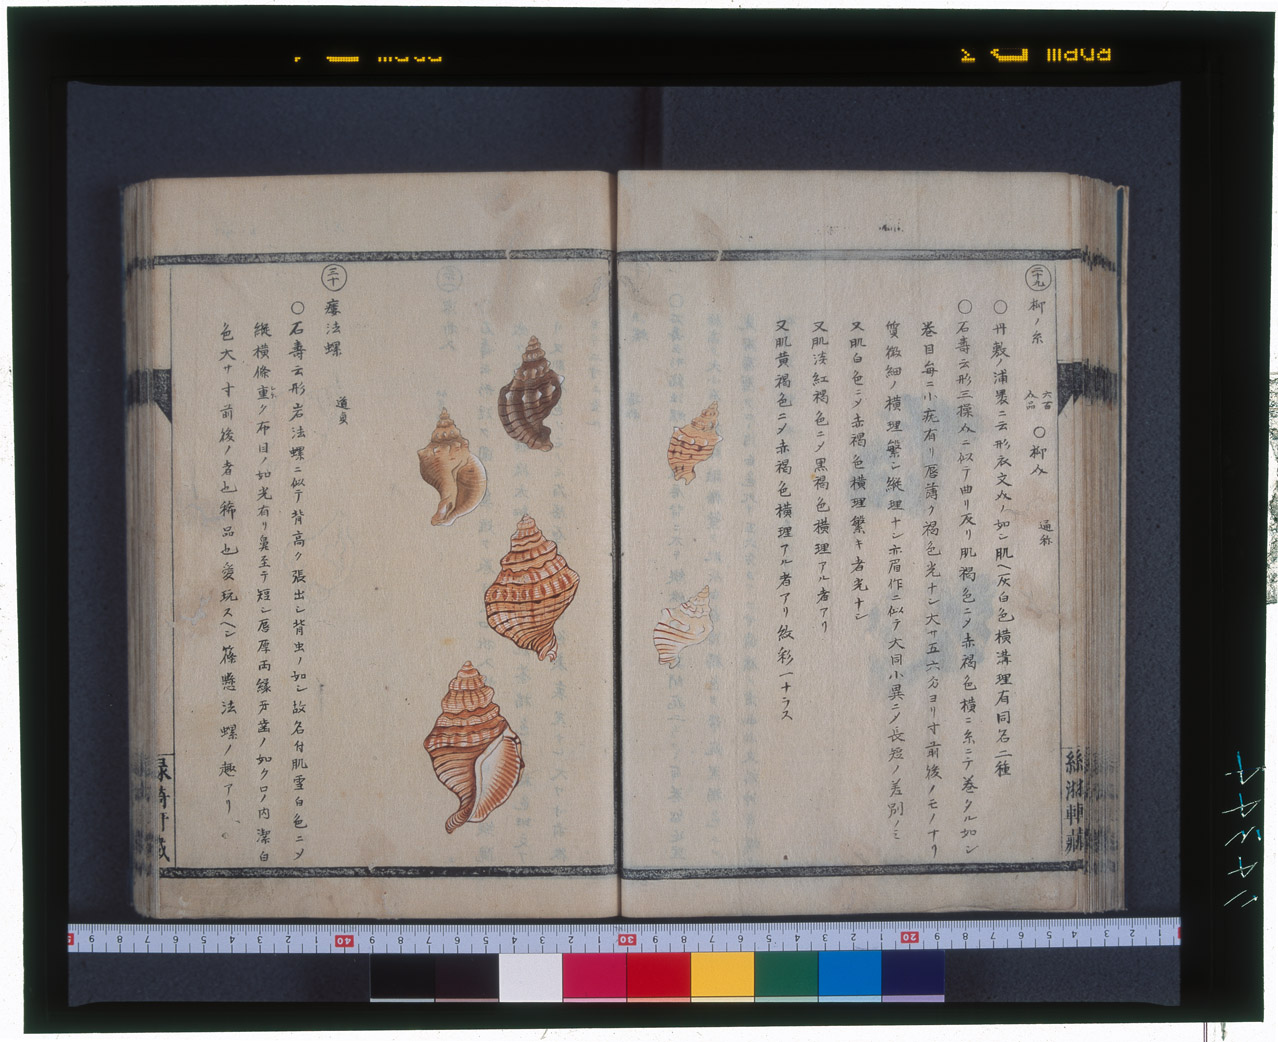 二十九
柳ノ糸
六百
介品
○柳介
通称
○丹敷ノ浦裏ニ云形衣文介ノ如シ肌ヘ灰白色横溝理有同名二種
○石壽云形三揲介ニ似テ曲リ反リ肌褐色ニメ赤褐色横ニ糸ニテ巻タル如シ
巻目毎ニ小疣有リ唇薄ク褐色光ナシ大サ五六分ヨリ寸前後ノモノナリ
質微細ノ横理繁シ縦理ナシ亦眉作ニ似テ大同小異ニメ長短ノ差別ノミ
又肌白色ニメ赤褐色横理繁キ者光ナシ
又肌淡紅褐色ニメ黒褐色横理アル者アリ
又肌黄褐色ニメ赤褐色横理アル者アリ紋彩一ナラス
絲漵軒蔵
三十
法螺
○石壽云形岩法螺ニ似テ背高ク張出シ背虫ノ如シ故名付肌雪白色ニメ
縦横條重ク布目ノ如光有リ鼻至テ短シ唇厚両縁牙歯ノ如ク口ノ内潔白
色大サ寸前後ノ者也稀品也愛玩スヘシ篠懸法螺ノ趣アリ